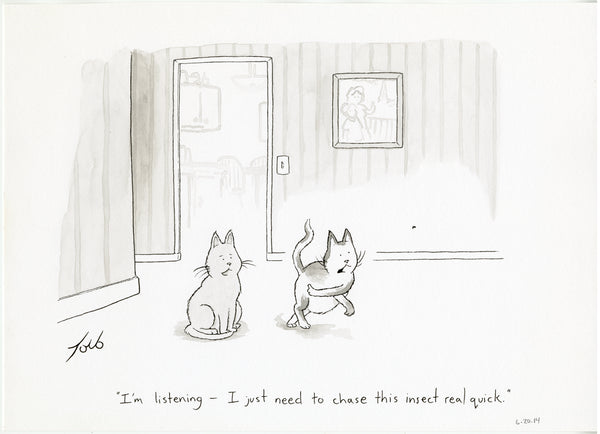 Toro
"I'm listening – I just need to chase this insect real quick."
6-20-14